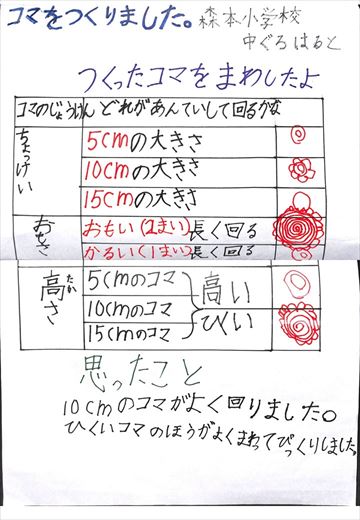 コマをつくりました。森本小学校
中ぐろはると
つくったコマをまわしたよ
コマのじょうけん どれがあんていして回るかな
ちょっけい
5cmの大きさ
10cmの大きさ
15cmの大きさ
おもさ
おもい(2まい)長く回る
かるい(1まい)長く回る
高さ
たか
5cmのコマ
10cmのコマ
15cmのコマ
高い
ひくい
思ったこと
10cmのコマがよく回りました。
ひくいコマのほうがよくまわってびっくりしました。